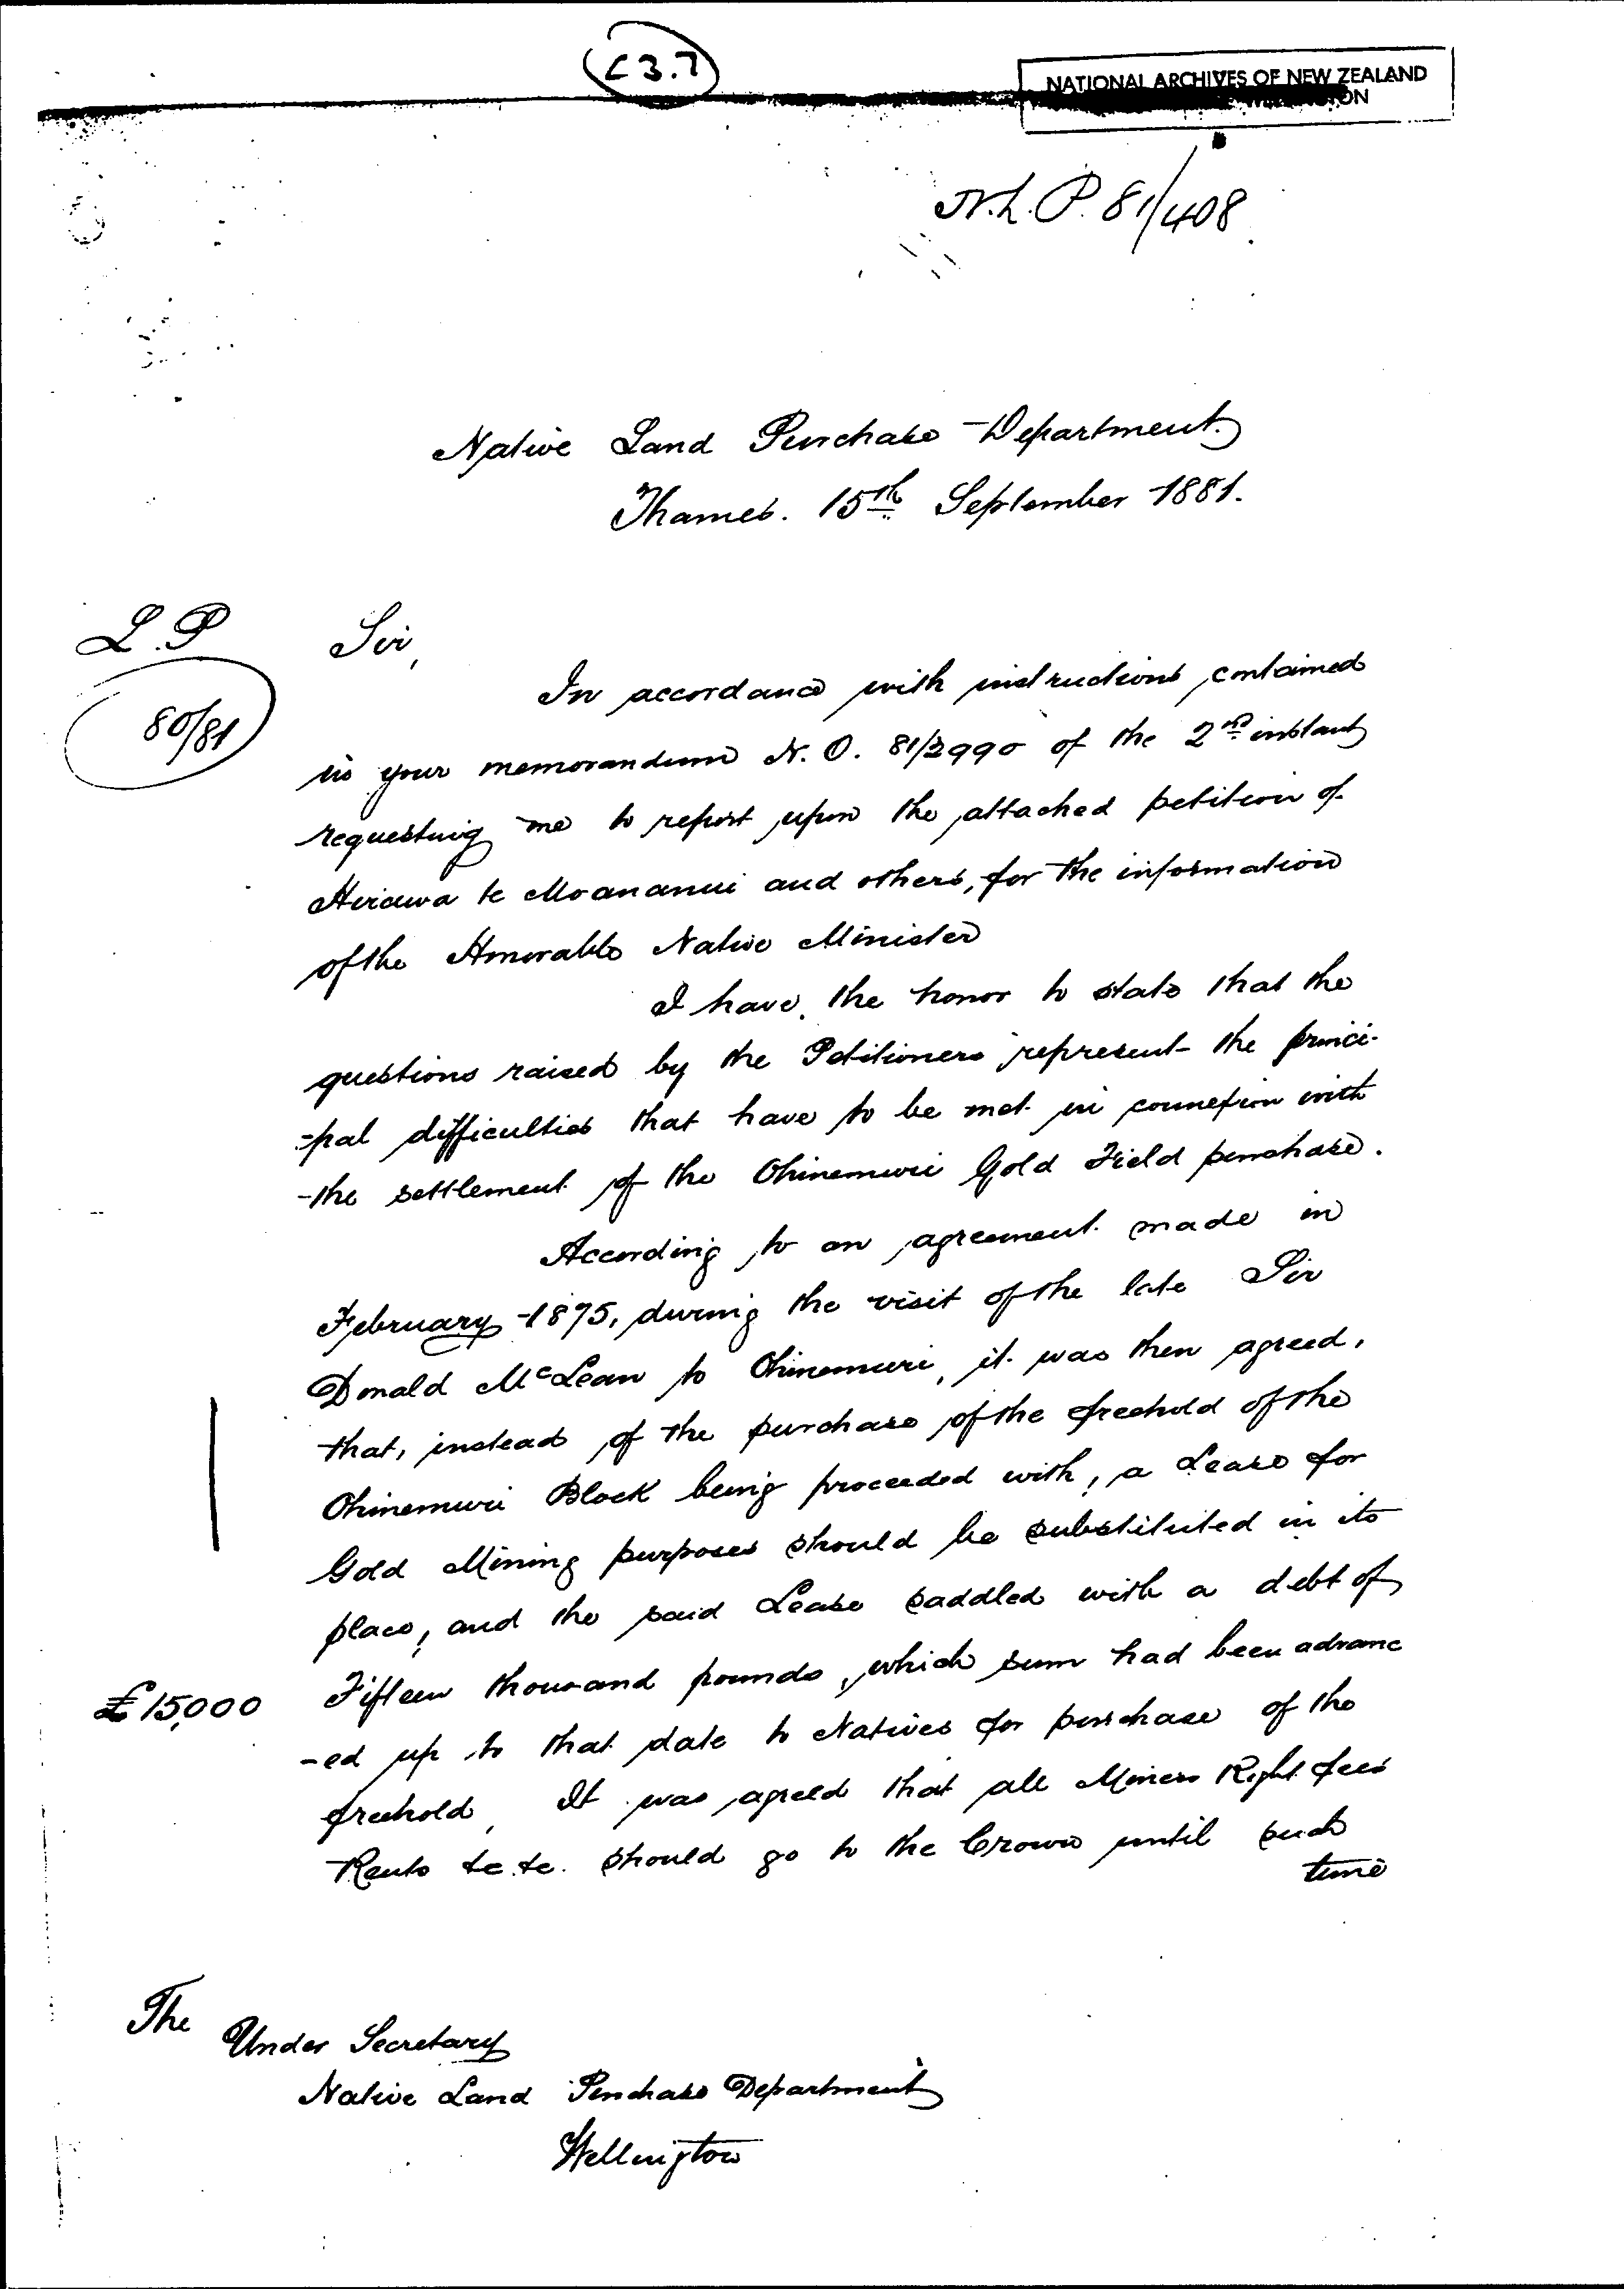 C3.7
NATIONAL ARCHIVES OF NEW ZEALAND
N.L.P. 81/408
Native Land Purchase Department.
Thames. 15th September 1881.
L.P
80/81
Sir,
In accordance with instructions contained
in your memorandum N.O. 81/2990 of the 2nd instant
requesting me to report upon the attached petition of
te Moananui and others, for the information
of the Honorable Native Minister
I have the honor to state that the
questions raised by the Petitioners represent the princi-
-pal difficulties that have to be met in connexion with
-the settlement of the Ohinemuri Gold Field purchase.
According to an agreement made in
February 1875, during the visit of the late Sir
Donald McLean to Ohinemuri, it was then agreed,
that, instead of the purchase of the freehold of the
Ohinemuri Block being proceeded with, a Lease for
Gold Mining purposes should be substituted in its
place, and the said Lease saddled with a debt of
£15,000
Fifteen thousand pounds, which sum had been advanc
-ed up to that date to Natives for purchase of the
freehold, It was agreed that all Miners Right fees
Rents &c. &c. should go to the Crown until such
time
The
Under Secretary
Native Land Purchase Department
Wellington